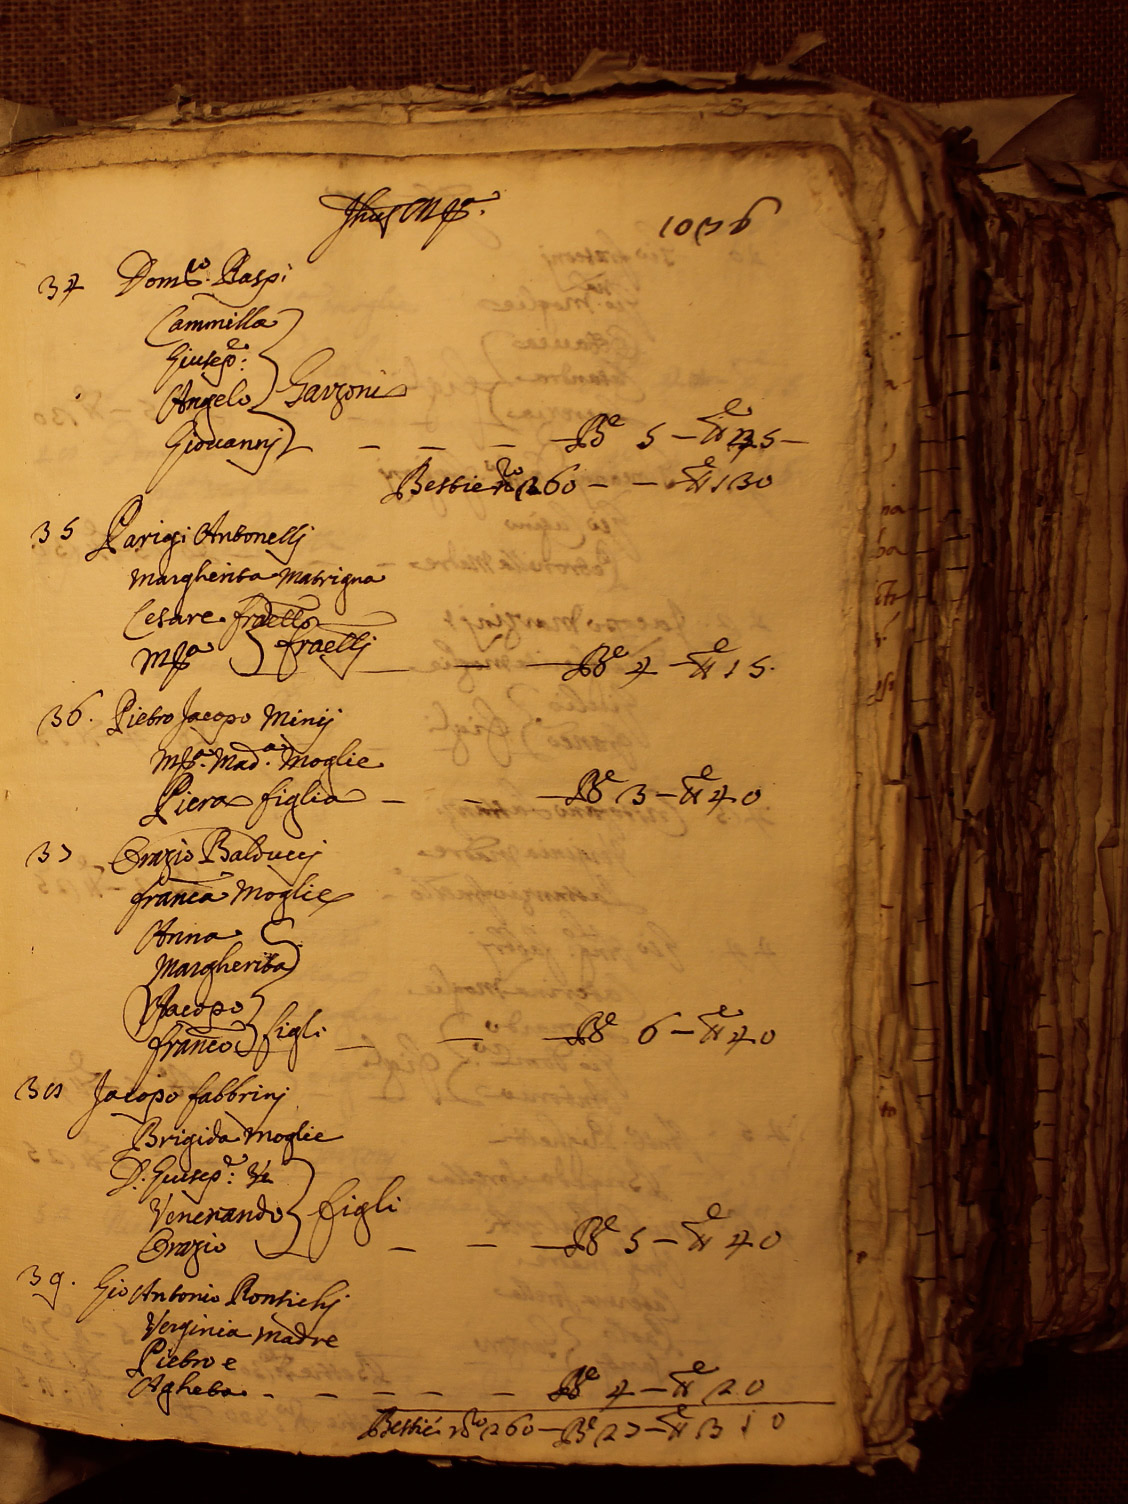 Jhus Mᵃ.
34 Domᶜᵒ. Raspi
Cammilla
Giusepᵉ:
Angelo Garzoni
Giovannj - - - - Bᶜ 5 - 
Bestie nᵒ 260 - - 130
35 Parigi Antonellj
Margherita Matrigna
Cesare fratello
Mᵃ fratellj Bᶜ 4 - 15.
36. Pietro Jacopo Minij
Mᵃ. Madᵃ. Moglie
Piera figlia - - - Bᶜ 3 - 40
37 Orazio Balduccj
franca Moglie
Anna
Margherita
Jacopo
francᵒ figli - - - Bᶜ 6 - 40
38 Jacopo fabbrinj
Brigida Moglie
D. Giusepᵉ:
Venerando figli
Orazio - - - Bᶜ 5 - 40
39. Gio Antonio Pontichj
Verginia Madre
Pietro e
Agheta. - - - - - Bᶜ 4 - 20
Bestie nᵒ 260 - Bᶜ 27 - 310